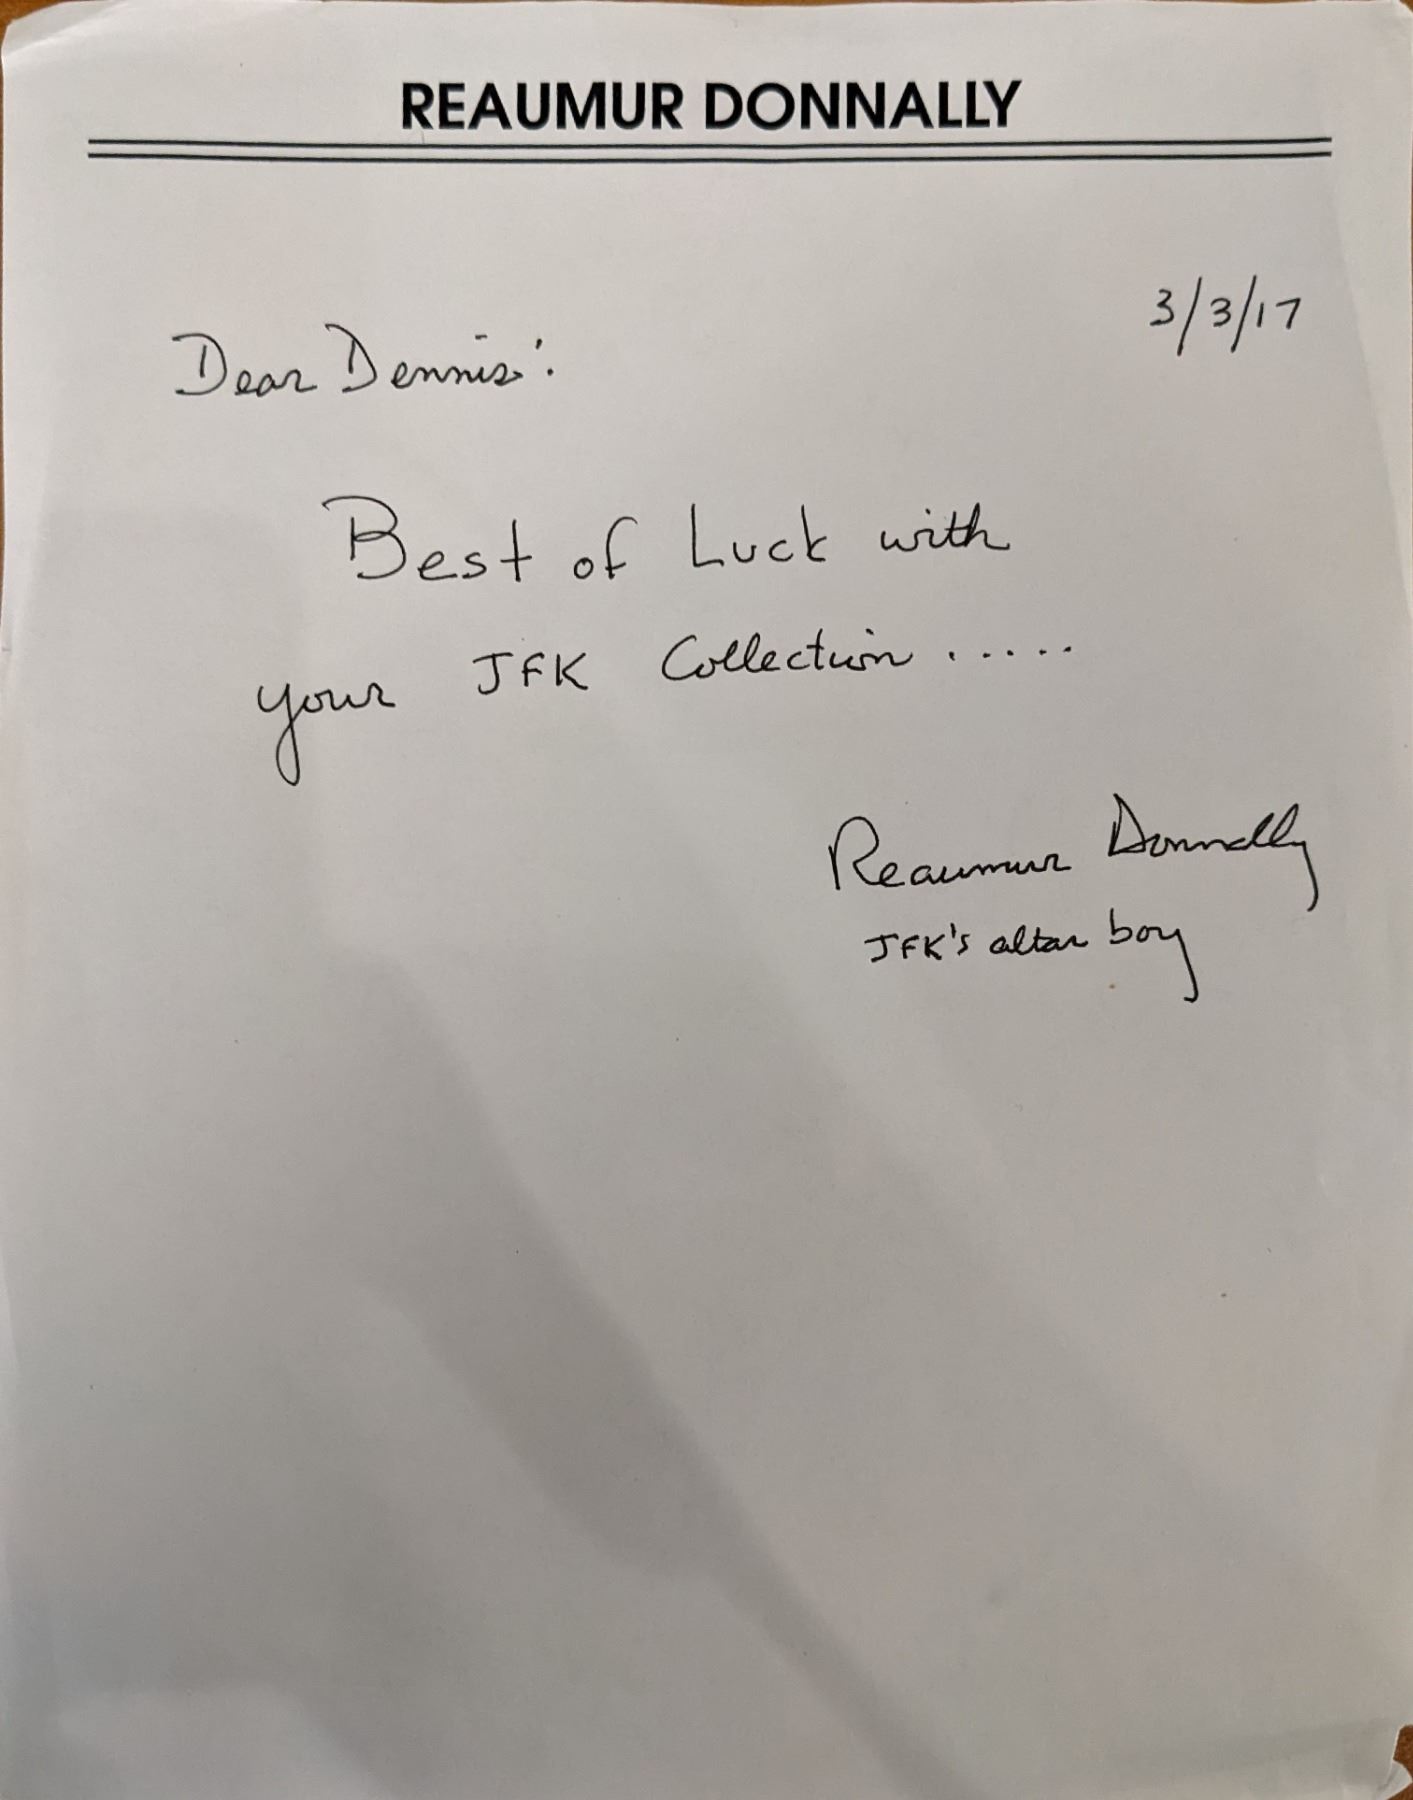 REAUMUR DONNALLY
3/3/17
Dear Dennis:
Best of Luck with
your JFK Collection .....
Reaumur Donnally
JFK's altar boy